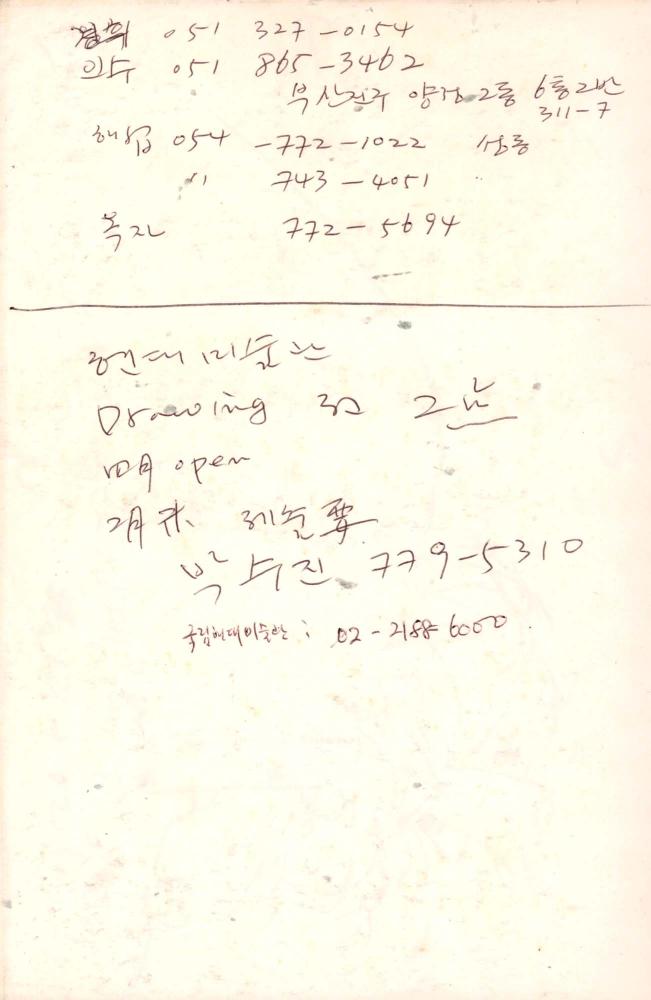 영희 051 327-0154
인수 051 865-3462
부산진구 양정2동 6통2반
311-7
해섭 054 -772-1022
〃 743-4051
복자 772-5694
현대미술관
Drawing 전 2点
四月 open
2月末 제출要
박수진 779-5310
국립현대미술관 : 02-2188 6000